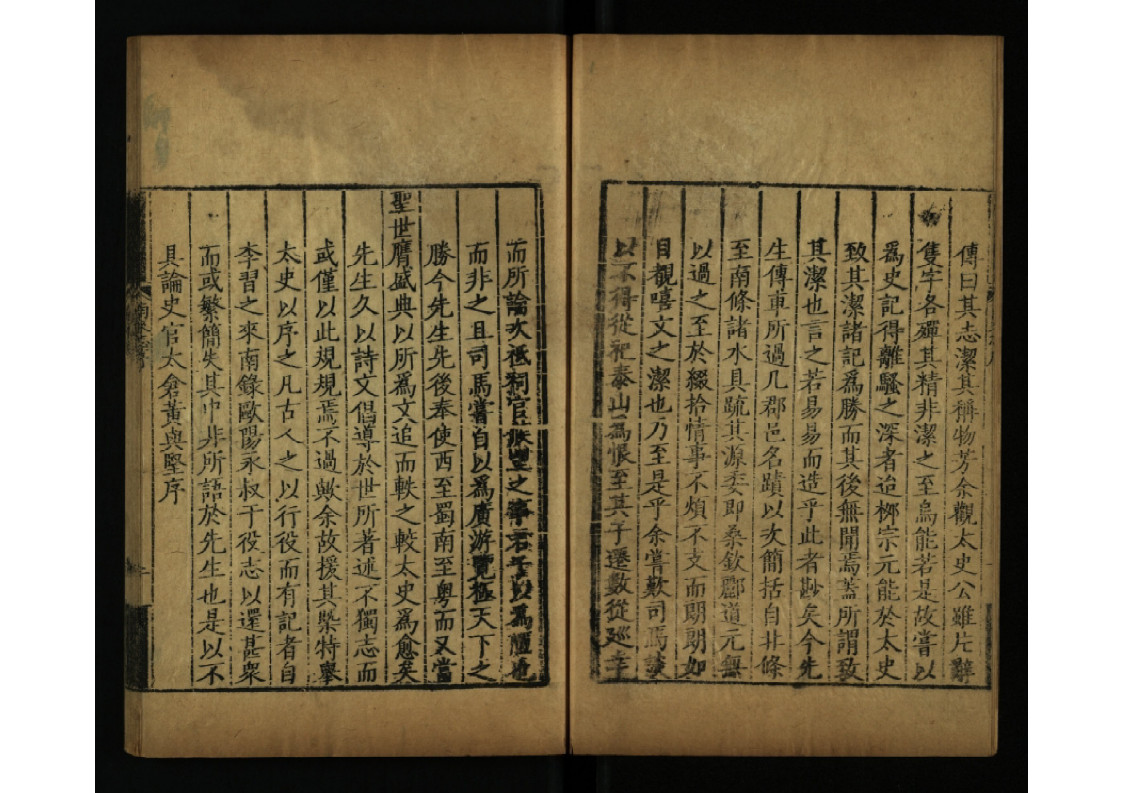 傳曰其志潔其稱物芳余觀太史公雖片辭
隻字各殫其精非潔之至烏能若是故嘗以
爲史記得離騷之深者迨栁宗元能於太史
致其潔諸記爲勝而其後無聞焉蓋所謂致
其潔也言之若易易而造乎此者尠矣今先
生傳車所過凡郡邑名蹟以次簡括自北條
至南條諸水具疏其源委即桑欽酈道元無
以過之至於綴拾情事不煩不支而朗朗如
目覩嘻文之潔也乃至是乎余嘗歎司馬談
以不得從祀泰山爲恨至其子遷數從廵幸
而所論次祗祠官
之事君子以爲
而非之且司馬嘗自以爲廣游覽極天下之
勝今先生先後奉使西至蜀南至粵而又當
聖世膺盛典以所爲文追而軼之較太史爲愈矣
先生久以詩文倡導於世所著述不獨志而
或僅以此規規焉不過歟余故援其槩特舉
太史以序之凡古人之以行役而有記者自
李習之來南錄歐陽永叔于役志以還甚衆
而或繁簡失其中非所語於先生也是以不
具論史官太倉黃與堅序